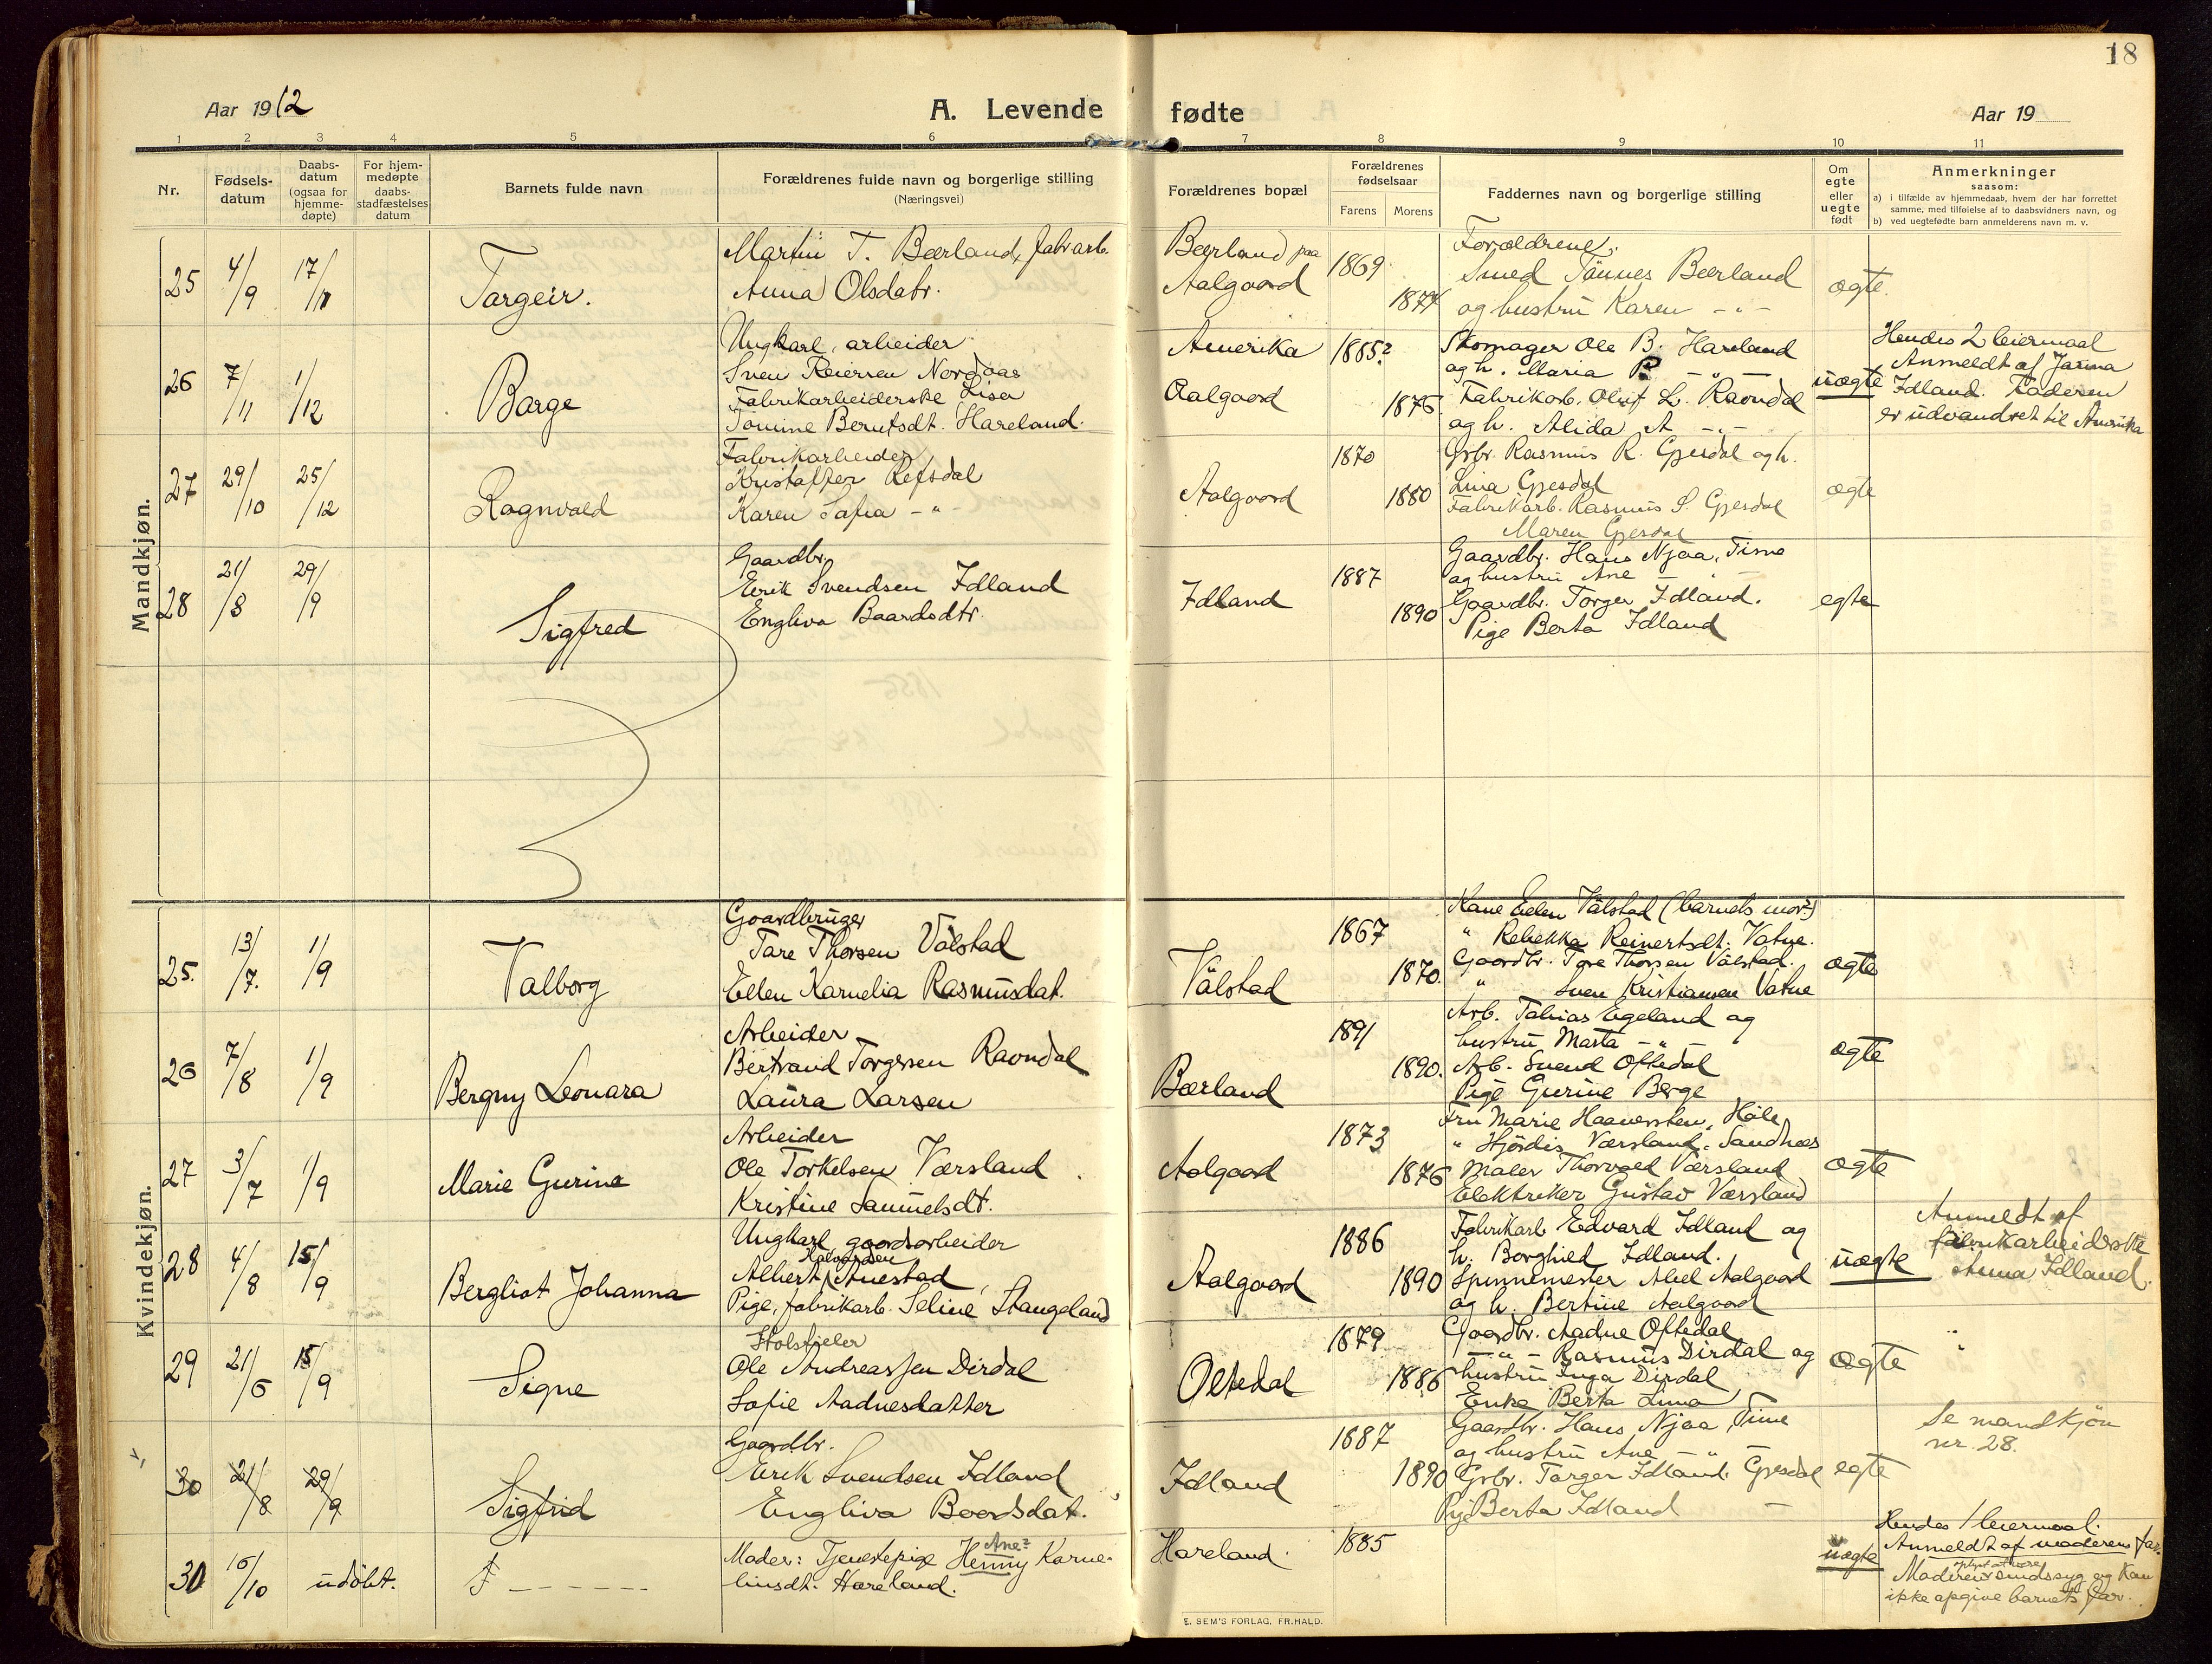 18
Aar 1912
A. Levende fødte
Aar 19
1 2 3 4 5 6 7 8 9 10 11
Nr.
Fødsels-
datum
Daabs-
datum
(ogsaa for
hjemme-
døpte)
For hjem-
medøpte
daabs-
stadfæstelses
datum
Barnets fulde navn
Forældrenes fulde navn og borgerlige stilling
(Næringsvei)
Forældrenes bopæl
Forældrenes
fødselsaar
Farens
Morens
Faddernes navn og borgerlige stilling
Om
egte
eller
uegte
født
Anmerkninger
saasom:
a) i tilfælde av hjemmedaab, hvem der har forrettet
samme, med tilføielse af to daabsvidners navn, og
b) ved uegtefødte barn anmelderens navn m. v.
Mandkjøn.
25
4/9
17/11
Targeir.
Martin T. Bærland, fabr arb.
Anna Olsdatr.
Bærland paa
Aalgaard
1869
1874
Forældrene.
Smed Tønnes Bærland
og hustru Karen - " -
ægte.
26
7/11
1/12
Barge
Ungkarl, arbeider
Sven Reiersen Nordaas
Fabrikarbeiderske Lisa
Tomine Berntsdt. Hareland.
Amerika
Aalgaard
1885?
1876
Skomager Ole B. Hareland
og h. Maria B. - " -
Fabrikarb. Oluf L. Ravndal
og h. Alida A. - " -
uægte
Hendes 2 leiermaal
Anmeldt af Jarina
Idland. Faderen
er udvandret til Amerika
27
29/10
25/12
Ragnvald
Fabrikarbeider
Kristaffer Refsdal
Karen Safia - " -
Aalgaard
1870
1880
Grbr. Rasmus R. Gjesdal og h.
Lina Gjesdal
Fabrikarb. Rasmus S. Gjesdal
Maren Gjesdal
ægte
28
21/8
29/9
Sigfred
Gaardbr.
Eerik Svendsen Idland
Engliva Baardsdtr.
Idland
1887
1890
Gaardbr. Hans Njaa, Time
og hustru Ane - " -
Gaardbr. Torger Idland.
Pige Berta Idland
egte
Kvindekjøn.
25.
13/7.
1/9
Valborg
Gaardbruger
Tare Thorsen Vålstad
Ellen Karnelia Rasmusdat.
Vålstad
1867
1870.
Kane Ellen Vålstad (barnets mor?)
" Rebekka Reinertsdt. Vatne.
Gaardbr. Tore Thorsen Vålstad.
" Sven Kristiansen Vatne
ægte
26
7/8
1/9
Bergny Leonara
Arbeider
Bertrand Torgersen Ravndal
Laura Larsen
Bærland
1891
1890.
Arb. Tobias Egeland og
hustru Marta - " -
Arb. Svend Oftedal
Pige Gurine Berge
ægte
27
3/7
1/9
Marie Gurine
Arbeider
Ole Torkelsen Værsland
Kristine Samuelsdt.
Aalgaard
1873
1876
Fru Marie Haaversten, Høle
" Hjördis Værsland, Sandnæs
Maler Thorvald Værsland
Elektriker Gustav Værsland
ægte
28
4/8
15/9
Bergliot Johanna
Ungkarl, gaardsarbeider
Albert Auestad
Pige, fabrikarb. Seline Stangeland
Aalgaard
1886
1890
Fabrikarb Edvard Idland og
h. Borghild Idland.
Spinnemester Abel Aalgaard
og h. Bertine Aalgaard
uægte
Anmeldt af
fabrikarbeiderske
Anna Idland.
29
21/6
15/9
Signe
Ole Andreassen Dirdal
Sofie Aadnesdatter
Oltedal
1879
1886
Gaardbr. Aadne Oftedal
- " - Rasmus Dirdal og
hustru Inga Dirdal
Enke Berta Lima
ægte
30
21/8
29/9
Sigfrid
Gaardbr.
Eerik Svendsen Idland
Engliva Boordsdat.
Idland
1887
1890
Gaardbr. Hans Njaa, Time
og hustru Ane - " -
Grbr. Targer Idland. Gjesdal
Pige Berta Idland
egte
Se mandkjön
nr. 28.
30
16/10
udöbt.
F - - - - - -
Moder: Tjenestepige Ane? Henny Karne-
liusdt. Hareland.
Hareland.
1885
uægte
Hendes 1 leiermaal.
Anmeldt af moderens far.
Moderen sindssyg og kan
ikke opgive barnets far.
E. SEM'S FORLAG, FR.HALD.